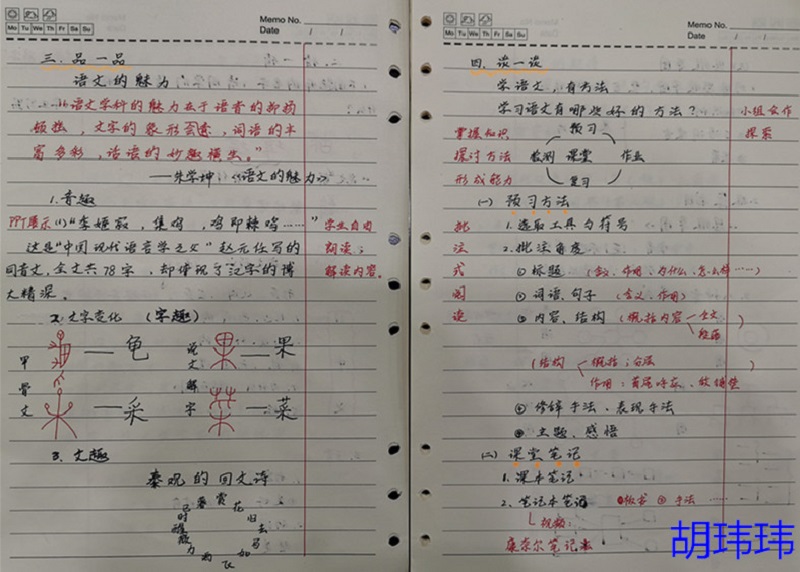 Memo No.
Mo Tu We Th Fr Sa Su
Date / /
三. 品一品
语文的魅力:
"语文学科的魅力在于语音的抑扬
顿挫，文字的象形会意，词语的丰
富多彩，话语的妙趣横生。"
——朱学坤:《语文的魅力》
1. 音趣
PPT展示(1)"季姬寂，集鸡，鸡即棘鸣……"
学生自由
朗读；
解读内容。
这是"中国现代语言学之父"赵元任写的
同音文，全文共78字，却体现了汉字的博
大精深。
2. 文字变化 (字趣)
甲骨文
龟
采
说文解字
果
菜
3. 文趣
秦观的回文诗
赏花归去马如飞
酒力微醒时已暮
Memo No.
Mo Tu We Th Fr Sa Su
Date / /
四. 谈一谈
学语文，有方法
学习语文有哪些好的方法？
小组合作
探究
掌握知识
探讨方法
形成能力
预习
检测 课堂 作业
复习
(一) 预习方法
批注式阅读
1. 选取工具与符号
2. 批注角度
① 标题 (含义、作用、为什么、怎么样……)
② 词语、句子 (含义、作用)
③ 内容、结构 (概括内容
全文
段落
)
(结构
概括：分层
作用：首尾呼应、
)
④ 修辞手法、表现手法
⑤ 主题、感悟
(二) 课堂笔记
1. 课本笔记
2. 笔记本笔记
①板书 ② 手法 ……
视频:
康奈尔笔记法
胡玮玮